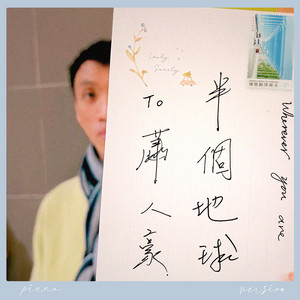 Lovely
Family
半個地球
To 蕭人豪
Wherever you are
piano version